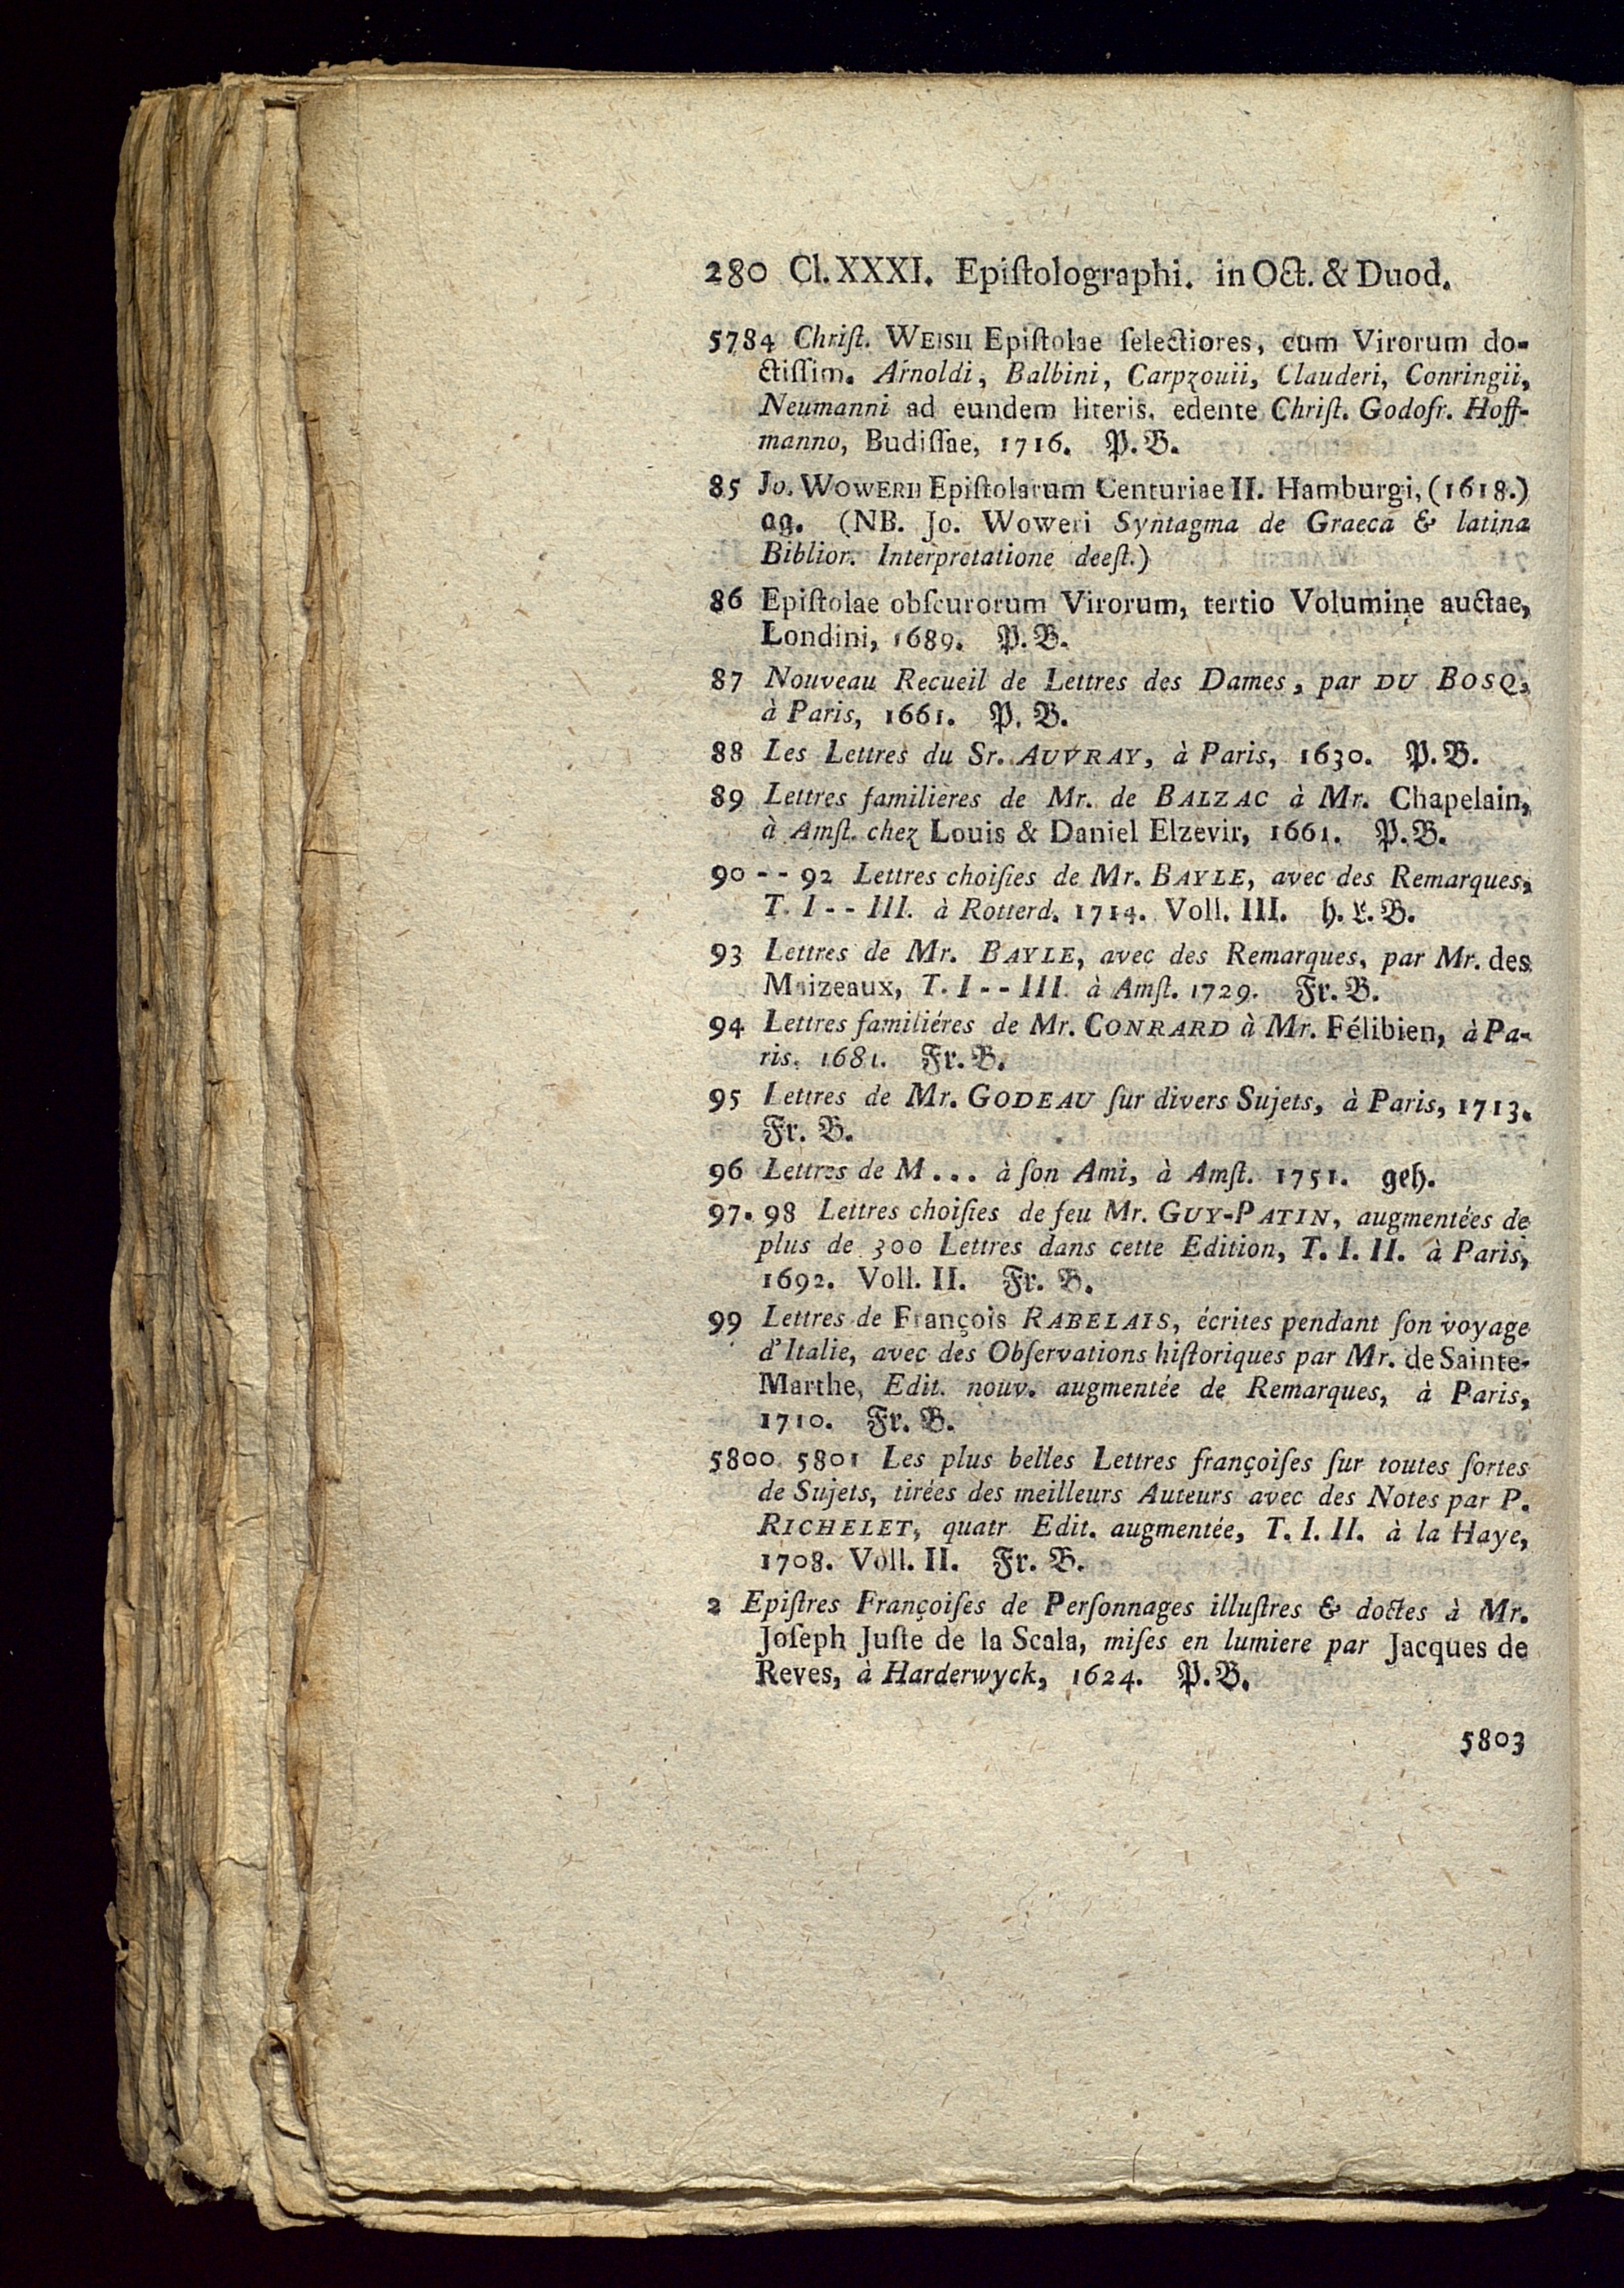 280 Cl. XXXI. Epiſtolographi. in Oct. & Duod.
5784 Chriſt. WEISII Epiſtolae ſelectiores, cum Virorum do-
ctiſſim. Arnoldi, Balbini, Carpzouii, Clauderi, Conringii,
Neumanni ad eundem literis. edente Chriſt. Godofr. Hoff-
manno, Budiſſae, 1716. P. B.
85 Jo. WOWERII Epiſtolarum Centuriae II. Hamburgi, (1618.)
ag. (NB. Jo. Woweri Syntagma de Graeca & latina
Biblior. Interpretatione deeſt.)
86 Epiſtolae obſcurorum Virorum, tertio Volumine auctae,
Londini, 1689. P. B.
87 Nouveau Recueil de Lettres des Dames, par DU BOSQ,
à Paris, 1661. P. B.
88 Les Lettres du Sr. AUVRAY, à Paris, 1630. P. B.
89 Lettres familières de Mr. de BALZAC à Mr. Chapelain,
à Amſt. chez Louis & Daniel Elzevir, 1661. P. B.
90 - - 92 Lettres choiſies de Mr. BAYLE, avec des Remarques,
T. I - - III. à Rotterd. 1714. Voll. III. h. L. B.
93 Lettres de Mr. BAYLE, avec des Remarques, par Mr. des
Maizeaux, T. I - - III. à Amſt. 1729. Fr. B.
94 Lettres familiéres de Mr. CONRARD à Mr. Félibien, à Pa-
ris. 1681. Fr. B.
95 Lettres de Mr. GODEAU ſur divers Sujets, à Paris, 1713.
Fr. B.
96 Lettres de M... à ſon Ami, à Amſt. 1751. geh.
97. 98 Lettres choiſies de feu Mr. GUY-PATIN, augmentées de
plus de 300 Lettres dans cette Edition, T. I. II. à Paris,
1692. Voll. II. Fr. B.
99 Lettres de François RABELAIS, écrites pendant ſon voyage
d'Italie, avec des Obſervations hiſtoriques par Mr. de Sainte-
Marthe, Edit. nouv. augmentée de Remarques, à Paris,
1710. Fr. B.
5800. 5801 Les plus belles Lettres françoiſes ſur toutes ſortes
de Sujets, tirées des meilleurs Auteurs avec des Notes par P.
RICHELET, quatr. Edit. augmentée, T. I. II. à la Haye,
1708. Voll. II. Fr. B.
2 Epiſtres Françoiſes de Perſonnages illuſtres & doctes à Mr.
Joſeph Juſte de la Scala, miſes en lumiere par Jacques de
Reves, à Harderwyck, 1624. P. B.
5803